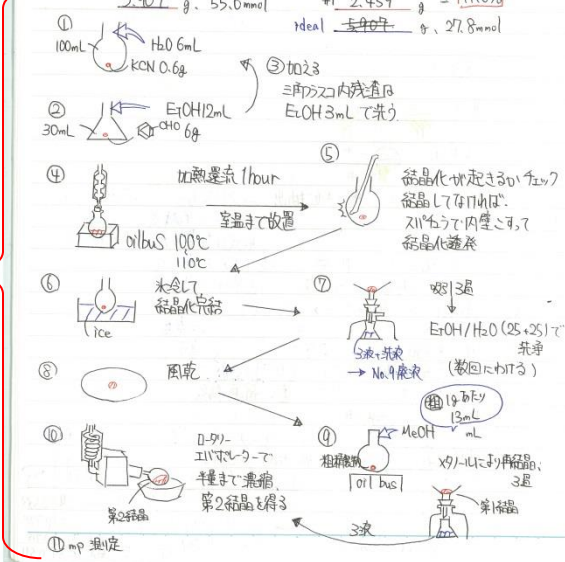 g、55.0mmol
2.459 g
ideal 5.907 g、27.8mmol
①
100mL
H₂O 6mL
KCN 0.6g
②
30mL
EtOH 12mL
CHO 6g
③ 加える
三角フラスコ内残渣は
EtOH 3mL で洗う
④
加熱還流 1hour
室温まで放置
oilbus 100℃
110℃
⑤
結晶化が起きるかチェック
結晶してなければ、
スパチュラで内壁こすって
結晶化誘発
⑥
氷冷して
結晶化完結
ice
⑦
吸引3過
EtOH/H₂O (25+25)で
洗浄
(数回にわける)
3液+洗液
→ No.9廃液
⑧
風乾
⑨
粗 1gあたり
13mL
MeOH mL
粗結晶
oil bus
メタノールにより再結晶、
3過
第1結晶
3液
⑩
ロータリー
エバポレーターで
半量まで濃縮、
第2結晶を得る
第2結晶
⑪ mp 測定